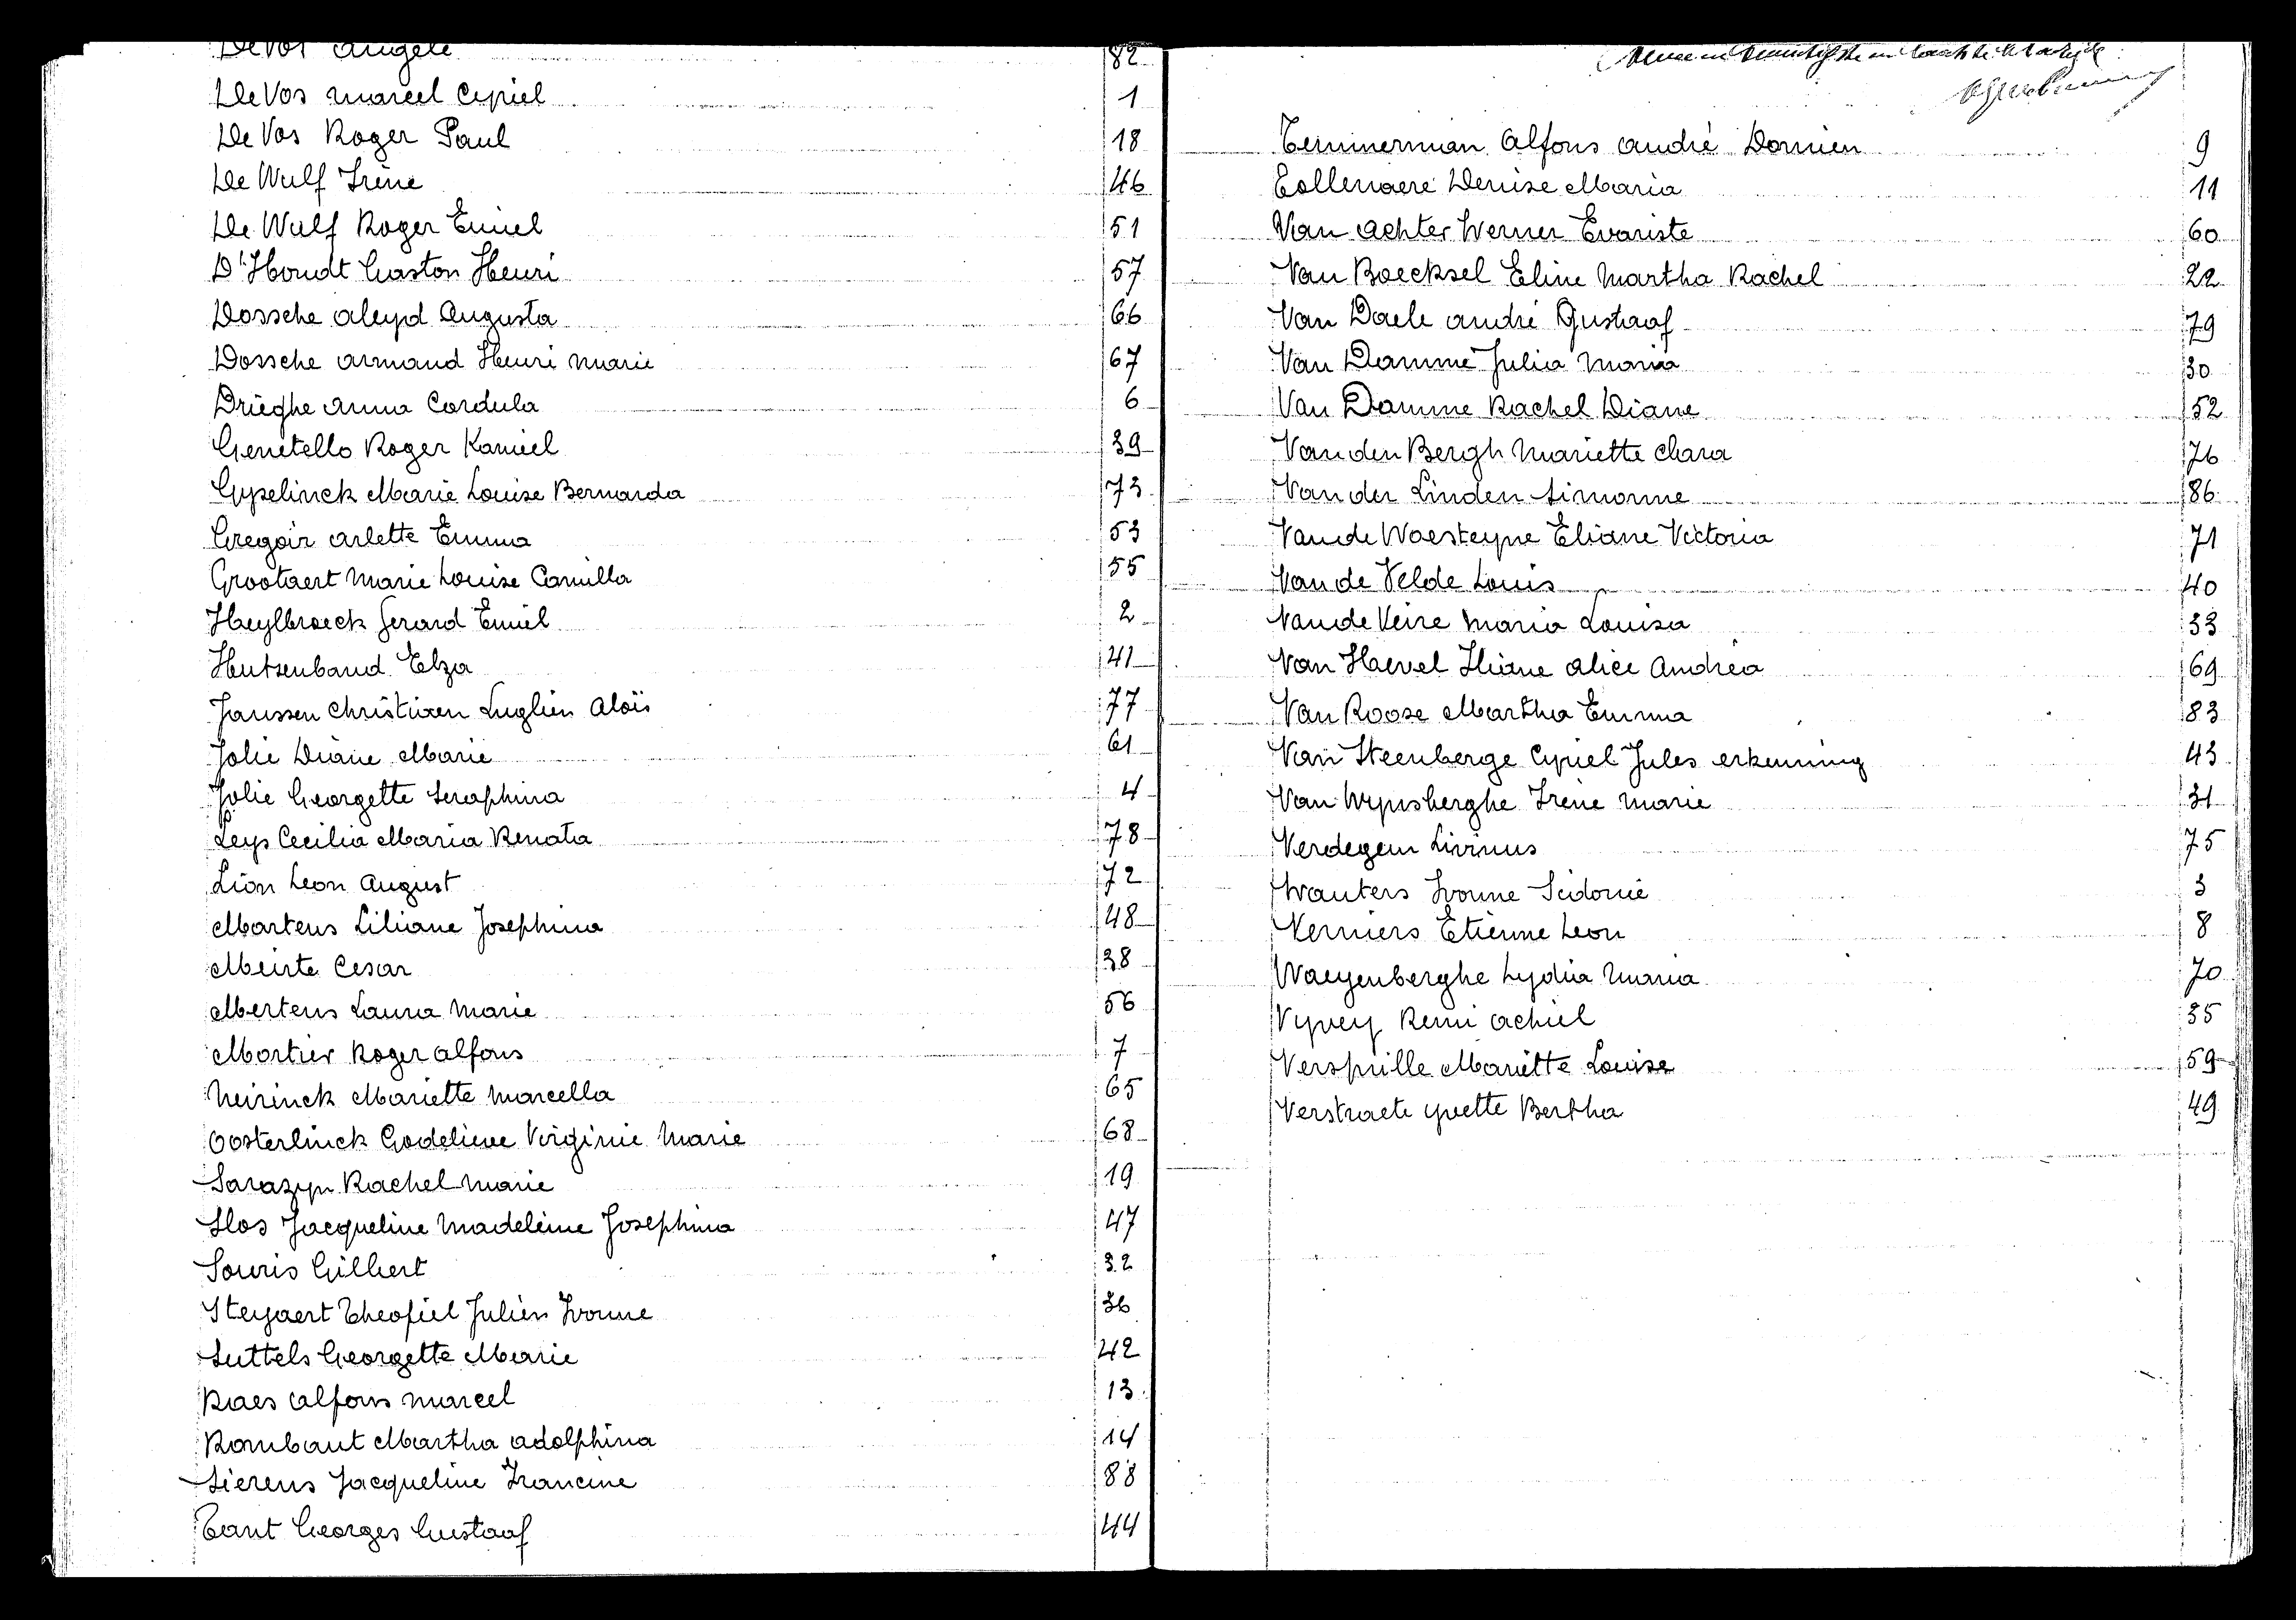 De Vos Angele 82
De Vos Marcel Cyriel 1
De Vos Roger Paul 18
De Wulf Irène 46
De Wulf Roger Emiel 51
D'Hondt Gaston Henri 57
Dossche Aleyd Augusta 66
Dossche Armand Henri Marie 67
Drieghe Anna Cordula 6
Genetello Roger Kamiel 39
Gypelinck Marie Louise Bernarda 73
Gregoir Arlette Emma 53
Grootaert Marie Louise Camilla 55
Heylbroeck Gerard Emiel 2
Hutsenbaud Elza 41
Janssen Christiaen Luglien Aloïs 77
Jolie Diane Marie 61
Jolie Georgette Seraphina 4
Leys Cecilia Maria Renata 78
Lion Leon August 72
Martens Liliane Josephina 48
Meirte Cesar 38
Mertens Laura Marie 56
Mortier Roger Alfons 7
Neirinck Mariette Marcella 65
Oosterlinck Godelieve Virginie Marie 68
Sarazyn Rachel Marie 19
Slos Jacqueline Madeleine Josephina 47
Souris Gilbert 32
Steyaert Theofiel Julien Ivonne 36
Suttels Georgette Marie 42
Raes Alfons Marcel 13
Rombaut Martha Adolphina 14
Sierens Jacqueline Francine 88
Tant Georges Gustaaf 44
Temmerman Alfons André Damien 9
Tollenaere Denise Maria 11
Van Achter Werner Evariste 60
Van Boecksel Eline Martha Rachel 22
Van Daele André Gustaaf 79
Van Damme Julia Maria 30
Van Damme Rachel Diane 52
Van den Bergh Mariette Clara 76
Van der Linden Simonne 86
Van de Woesteyne Eliane Victoria 71
Van de Velde Louis 40
Van de Veire Maria Louisa 33
Van Hevel Iliane Alice Andrea 69
Van Roose Martha Emma 83
Van Steenberge Cyriel Jules erkenning 43
Van Wynsberghe Irène Marie 31
Verdegem Livinus 75
Wauters Ivonne Sidonie 3
Verniers Etienne Leon 8
Waeyenberghe Lydia Maria 70
Vyvey Remi Achiel 35
Verspeille Mariette Louise 59
Verstraete Yvette Bertha 49